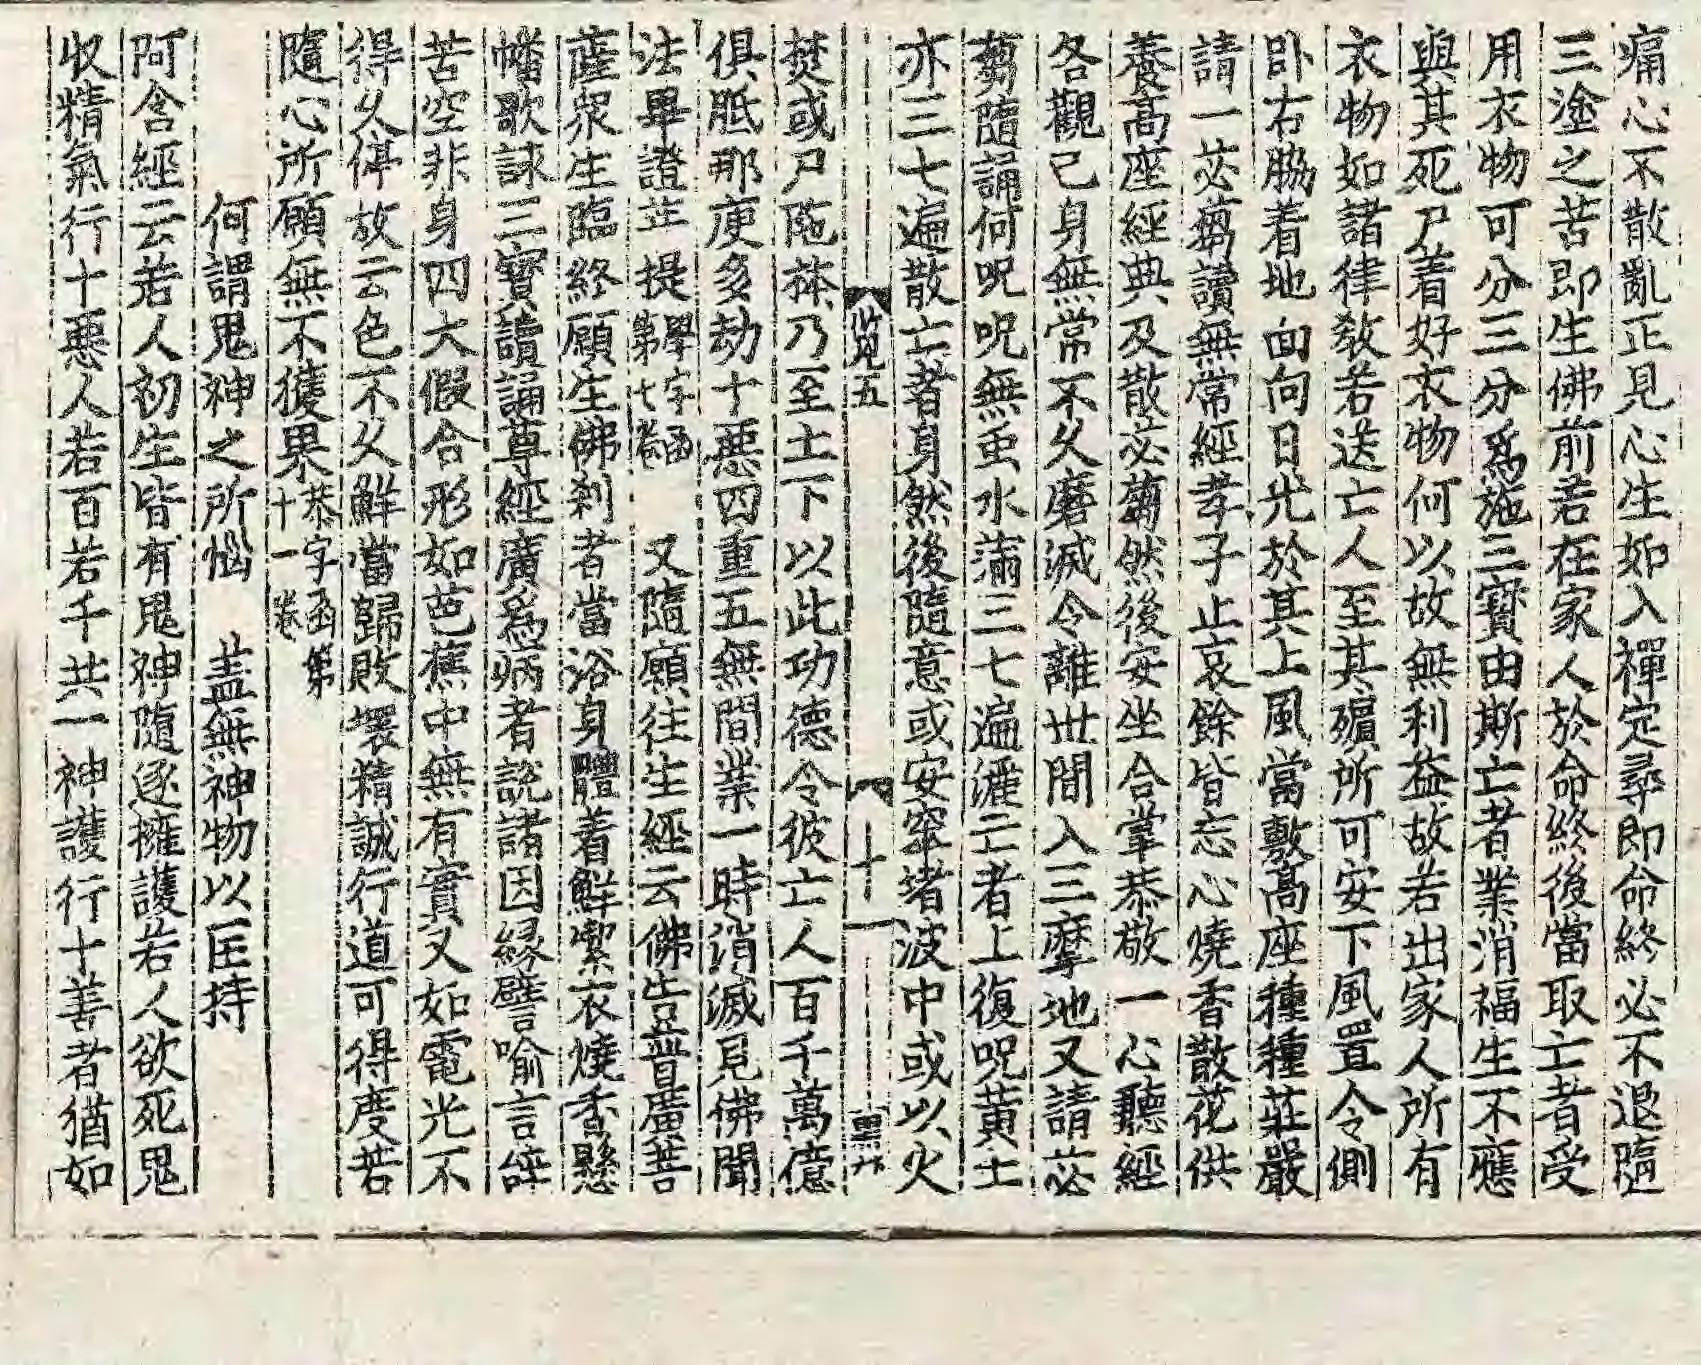 痛心不散亂正見心生如入禪定尋即命終必不退隨
三塗之苦即生佛前若在家人於命終後當取亡者受
用衣物可分三分爲施三寶由斯亡者業消福生不應
與其死尸着好衣物何以故無利益故若出家人所有
衣物如諸律教若送亡人至其殯所可安下風置令側
卧右脇着地面向日光於其上風當敷高座種種莊嚴
請一苾蒭讀無常經孝子止哀餘皆忘心燒香散花供
養高座經典及散苾蒭然後安坐合掌恭敬一心聽經
各觀己身無常不久磨滅令離世間入三摩地又請苾
蒭隨誦何呪呪無虫水滿三七遍灑亡者上復呪黃土
亦三七遍散亡者身然後隨意或安窣堵波中或以火
覽五 十一
焚或尸陁林乃至土下以此功德令彼亡人百千萬億
俱胝那庾多劫十惡四重五無間業一時消滅見佛聞
法畢證菩提學字函第七卷 又隨願往生經云佛告普廣菩
薩衆生臨終願生佛剎者當浴身體着鮮潔衣燒香懸
幡歌詠三寶讀誦尊經廣爲病者說諸因緣譬喻言辞
苦空非身四大假合形如芭蕉中無有實又如電光不
得久停故云色不久鮮當歸敗壞精誠行道可得度苦
隨心所願無不獲果恭字函第十一卷
何謂鬼神之所惱 盖無神物以匡持
阿含經云若人初生皆有鬼神隨逐擁護若人欲死鬼
收精氣行十惡人若百若千共一神護行十善者猶如